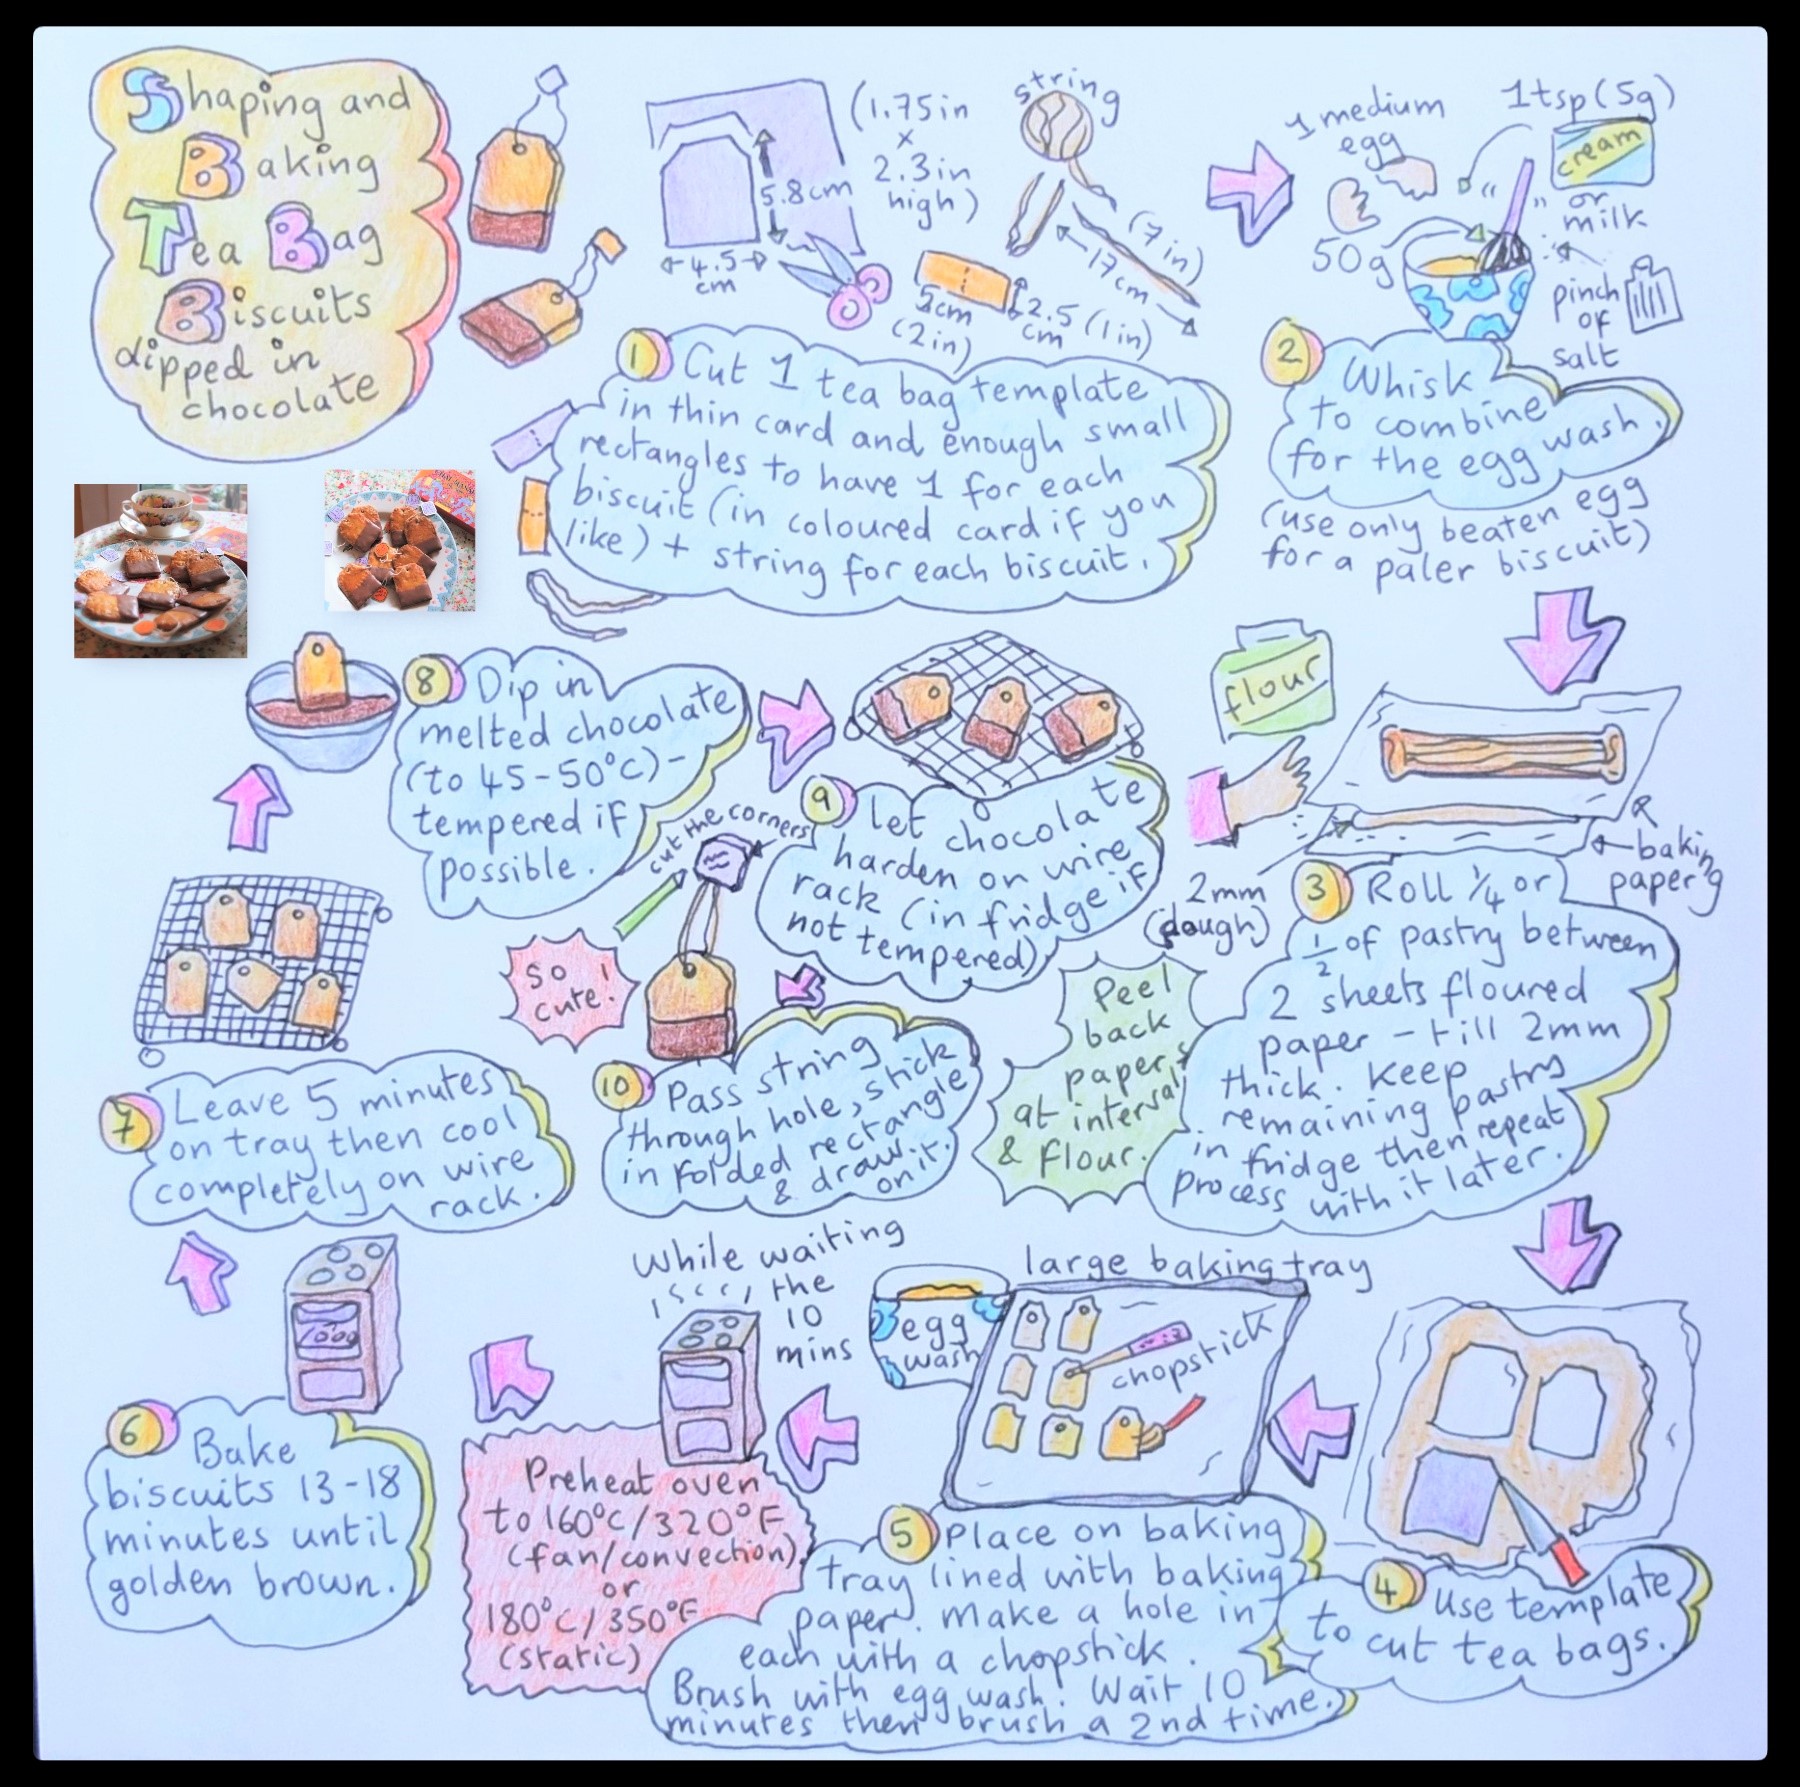 Shaping and
Baking
Tea Bag
Biscuits
dipped in
chocolate
(1.75in
x
2.3in
high)
5.8cm
4.5
cm
string
(7in)
17cm
5cm
(2in)
2.5
cm (1in)
1 Cut 1 tea bag template
in thin card and enough small
rectangles to have 1 for each
biscuit (in coloured card if you
like) + string for each biscuit.
1 medium
egg
50g
1tsp (5g)
cream
or
milk
pinch
of
salt
2 Whisk
to combine
for the egg wash.
(use only beaten egg
for a paler biscuit)
flour
baking
paper
2mm
(dough)
3 Roll 1/4 or
1/2 of pastry between
2 sheets floured
paper - till 2mm
thick. Keep
remaining pastry
in fridge then repeat
process with it later.
Peel
back
papers
at intervals
& flour.
4 Use template
to cut tea bags.
large baking tray
egg
wash
chopstick
5 Place on baking
tray lined with baking
paper. Make a hole in
each with a chopstick.
Brush with egg wash. Wait 10
minutes then brush a 2nd time.
While waiting
the
10
mins
Preheat oven
to 160°C/320°F
(fan/convection).
or
180°C/350°F
(static)
6 Bake
biscuits 13-18
minutes until
golden brown.
7 Leave 5 minutes
on tray then cool
completely on wire
rack.
8 Dip in
melted chocolate
(to 45-50°C) -
tempered if
possible.
9 Let chocolate
harden on wire
rack (in fridge if
not tempered)
cut the corners
So
cute!
10 Pass string
through hole, stick
in folded rectangle
& draw
on it.